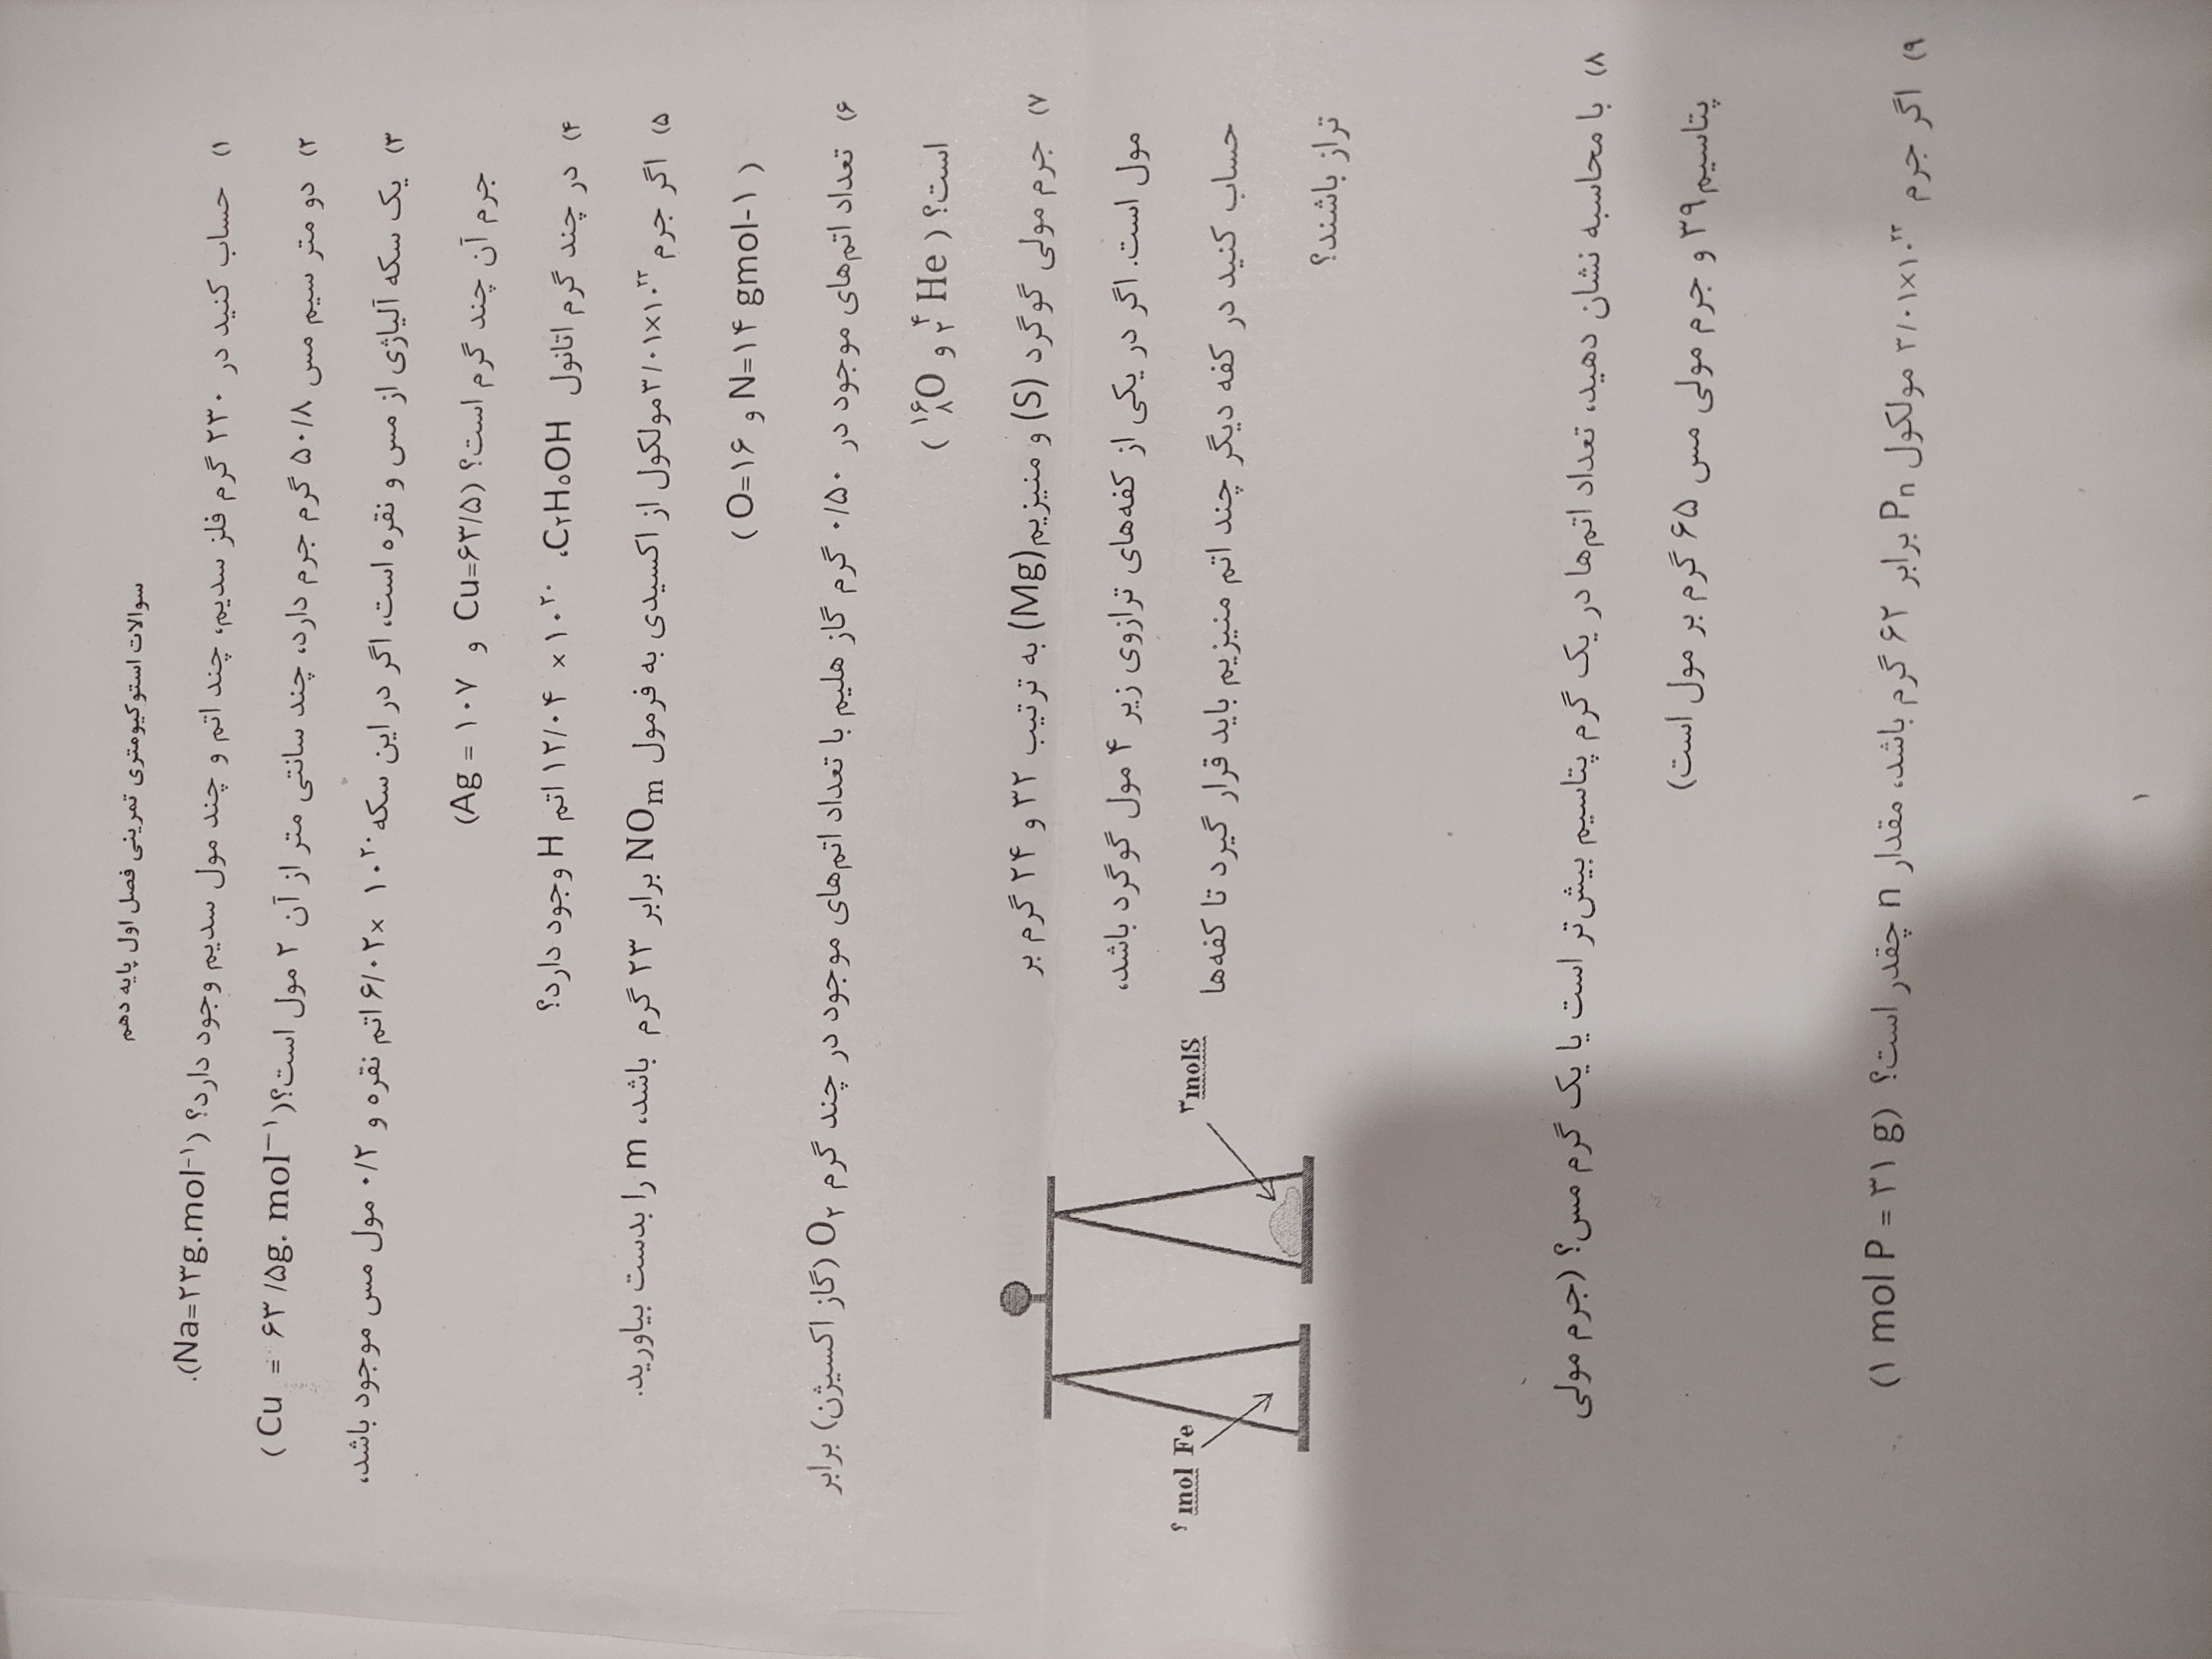 سوالات استوکیومتری تمرینی فصل اول پایه دهم
۱) حساب کنید در ۲۳۰ گرم فلز سدیم، چند اتم و چند مول سدیم وجود دارد؟ (Na=۲۳g.mol-۱).
۲) دو متر سیم مس ۵۰/۸ گرم جرم دارد، چند سانتی متر از آن ۲ مول است؟(Cu = ۶۳/۵g. mol−۱)
۳) یک سکه آلیاژی از مس و نقره است، اگر در این سکه ۶/۰۲× ۱۰۲۰ اتم نقره و ۰/۲ مول مس موجود باشد،
جرم آن چند گرم است؟ (Cu=۶۳/۵ و Ag = ۱۰۷)
۴) در چند گرم اتانول C۲H۵OH، ۱۲/۰۴ × ۱۰۲۰ اتم H وجود دارد؟
۵) اگر جرم ۳/۰۱×۱۰۲۳مولکول از اکسیدی به فرمول NOm برابر ۲۳ گرم باشد، m را بدست بیاورید.
(O=۱۶ و N=۱۴ gmol-۱)
۶) تعداد اتم‌های موجود در ۰/۵۰ گرم گاز هلیم با تعداد اتم‌های موجود در چند گرم O۲ (گاز اکسیژن) برابر
است؟ (۴۲He و ۱۶۸O)
۷) جرم مولی گوگرد (S) و منیزیم(Mg) به ترتیب ۳۲ و ۲۴ گرم بر
مول است. اگر در یکی از کفه‌های ترازوی زیر ۴ مول گوگرد باشد،
حساب کنید در کفه دیگر چند اتم منیزیم باید قرار گیرد تا کفه‌ها
تراز باشند؟
؟ mol Fe
۳molS
۸) با محاسبه نشان دهید، تعداد اتم‌ها در یک گرم پتاسیم بیش‌تر است یا یک گرم مس؟ (جرم مولی
پتاسیم۳۹ و جرم مولی مس ۶۵ گرم بر مول است)
۹) اگر جرم ۳/۰۱×۱۰۲۳ مولکول Pn برابر ۶۲ گرم باشد، مقدار n چقدر است؟ (۱ mol P = ۳۱ g)
۱